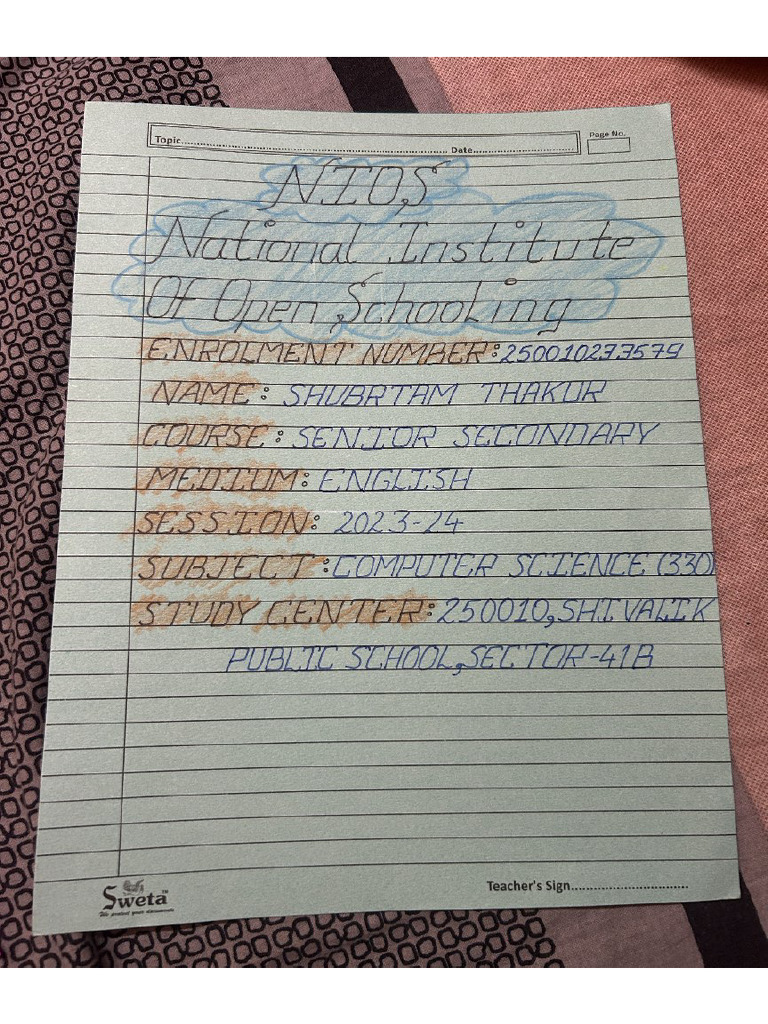 Topic.......... Date..........
Page No.
NIOS
National Institute
Of Open Schooling
ENROLMENT NUMBER: 250010233579
NAME: SHUBRTAM THAKUR
COURSE: SENIOR SECONDARY
MEDIUM: ENGLISH
SESSION: 2023-24
SUBJECT: COMPUTER SCIENCE (330)
STUDY CENTER: 250010, SHIVALIK
PUBLIC SCHOOL, SECTOR-41B
Sweta™
Teacher's Sign..........